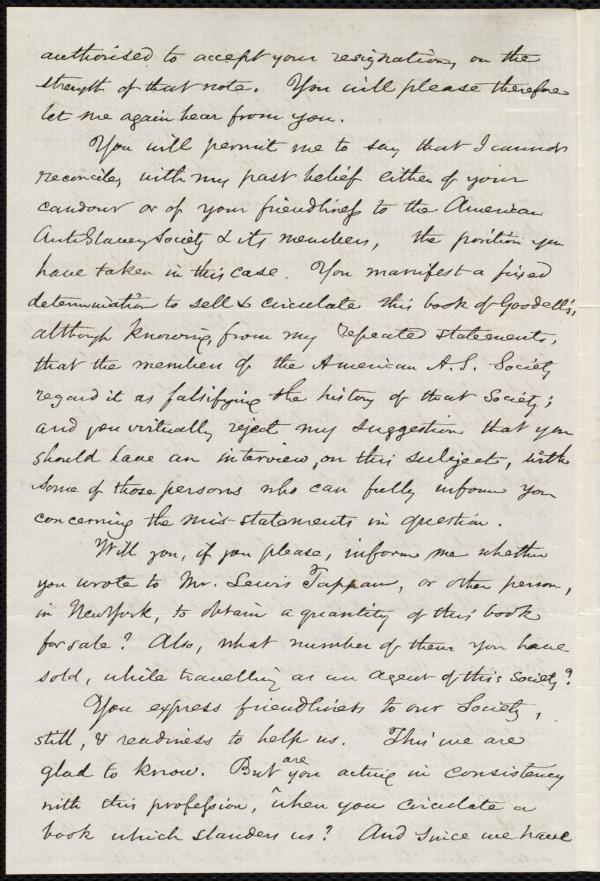 authorised to accept your resignation, on the
strength of that note. You will please therefore
let me again hear from you.
You will permit me to say that I cannot
reconcile, with my past belief either of your
candour or of your friendliness to the American
AntiSlavery Society & its members, the position you
have taken in this case. You manifest a fixed
determination to sell & circulate this book of Goodell's,
although knowing, from my repeated statements,
that the members of the American A.S. Society
regard it as falsifying the history of that Society;
and you virtually reject my suggestion that you
should have an interview, on this subject, with
some of those persons who can fully inform you
concerning the mis-statements in question.
Will you, if you please, inform me whether
you wrote to Mr. Lewis Tappan, or other person,
in New York, to obtain a quantity of this book
for sale? Also, what number of them you have
sold, while travelling as an agent of this Society?
You express friendliness to our Society,
still, & readiness to help us. This we are
glad to know. But are you acting in consistency
with this profession, when you circulate a
book which slanders us? And since we have